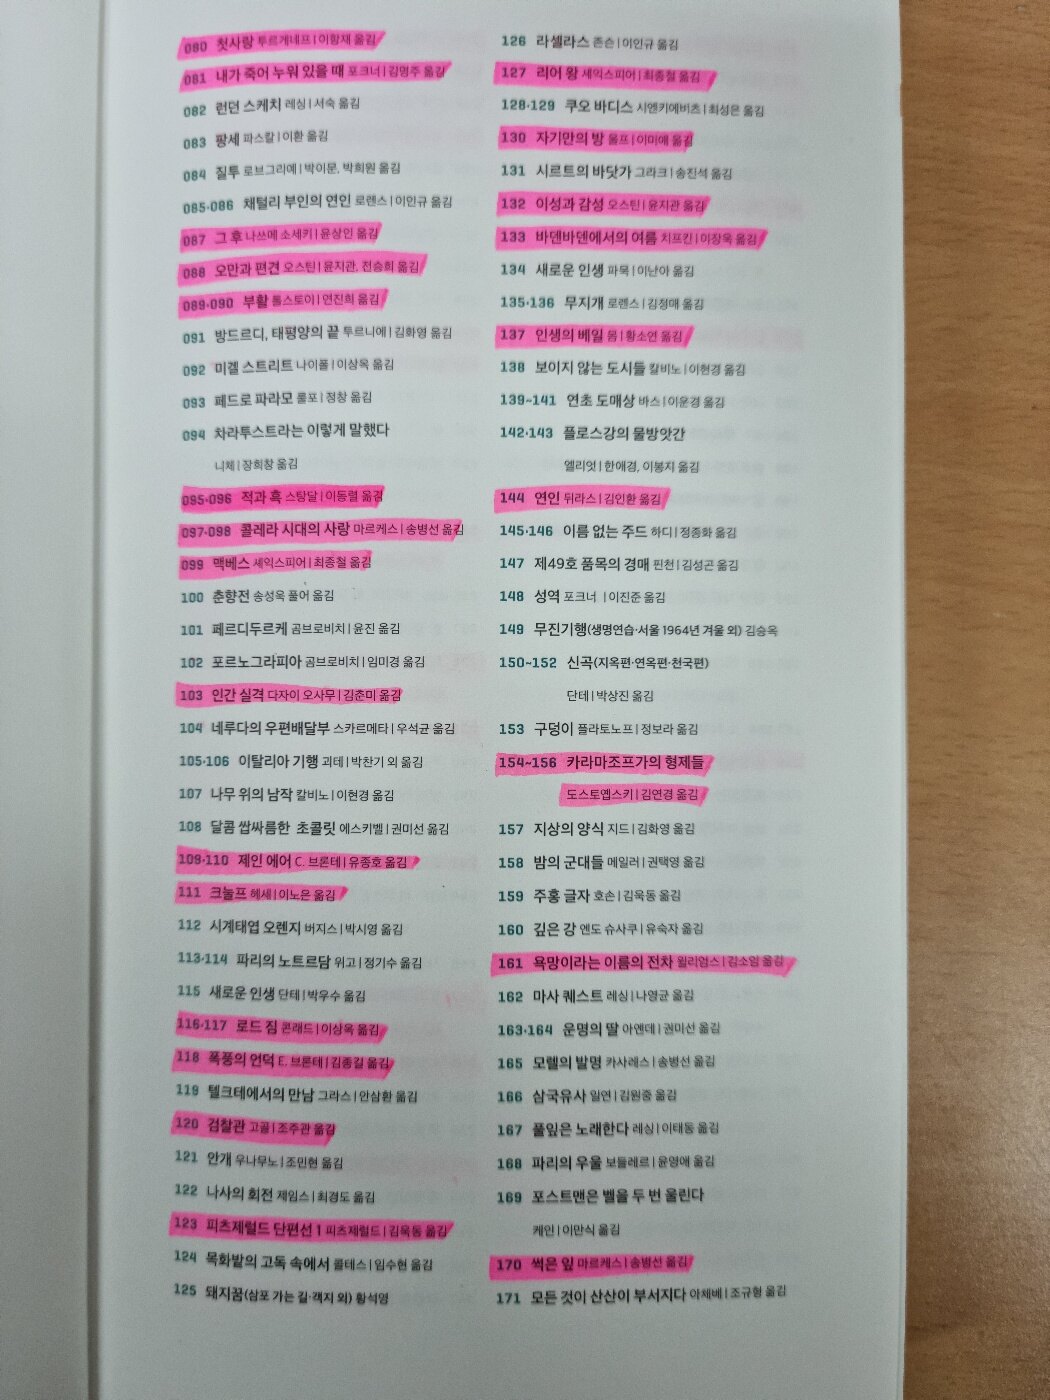 080 첫사랑 투르게네프 | 이항재 옮김
081 내가 죽어 누워 있을 때 포크너 | 김명주 옮김
082 런던 스케치 레싱 | 서숙 옮김
083 팡세 파스칼 | 이환 옮김
084 질투 로브그리예 | 박이문, 박희원 옮김
085·086 채털리 부인의 연인 로렌스 | 이인규 옮김
087 그 후 나쓰메 소세키 | 윤상인 옮김
088 오만과 편견 오스틴 | 윤지관, 전승희 옮김
089·090 부활 톨스토이 | 연진희 옮김
091 방드르디, 태평양의 끝 투르니에 | 김화영 옮김
092 미겔 스트리트 나이폴 | 이상옥 옮김
093 페드로 파라모 룰포 | 정창 옮김
094 차라투스트라는 이렇게 말했다
니체 | 장희창 옮김
095·096 적과 흑 스탕달 | 이동렬 옮김
097·098 콜레라 시대의 사랑 마르케스 | 송병선 옮김
099 맥베스 셰익스피어 | 최종철 옮김
100 춘향전 송성욱 풀어 옮김
101 페르디두르케 곰브로비치 | 윤진 옮김
102 포르노그라피아 곰브로비치 | 임미경 옮김
103 인간 실격 다자이 오사무 | 김춘미 옮김
104 네루다의 우편배달부 스카르메타 | 우석균 옮김
105·106 이탈리아 기행 괴테 | 박찬기 외 옮김
107 나무 위의 남작 칼비노 | 이현경 옮김
108 달콤 쌉싸름한 초콜릿 에스키벨 | 권미선 옮김
109·110 제인 에어 C. 브론테 | 유종호 옮김
111 크눌프 헤세 | 이노은 옮김
112 시계태엽 오렌지 버지스 | 박시영 옮김
113·114 파리의 노트르담 위고 | 정기수 옮김
115 새로운 인생 단테 | 박우수 옮김
116·117 로드 짐 콘래드 | 이상옥 옮김
118 폭풍의 언덕 E. 브론테 | 김종길 옮김
119 텔크테에서의 만남 그라스 | 안삼환 옮김
120 검찰관 고골 | 조주관 옮김
121 안개 우나무노 | 조민현 옮김
122 나사의 회전 제임스 | 최경도 옮김
123 피츠제럴드 단편선 1 피츠제럴드 | 김욱동 옮김
124 목화밭의 고독 속에서 콜테스 | 임수현 옮김
125 돼지꿈(삼포 가는 길·객지 외) 황석영
126 라셀라스 존슨 | 이인규 옮김
127 리어 왕 셰익스피어 | 최종철 옮김
128·129 쿠오 바디스 시엔키에비츠 | 최성은 옮김
130 자기만의 방 울프 | 이미애 옮김
131 시르트의 바닷가 그라크 | 송진석 옮김
132 이성과 감성 오스틴 | 윤지관 옮김
133 바덴바덴에서의 여름 치프킨 | 이장욱 옮김
134 새로운 인생 파묵 | 이난아 옮김
135·136 무지개 로렌스 | 김정매 옮김
137 인생의 베일 몸 | 황소연 옮김
138 보이지 않는 도시들 칼비노 | 이현경 옮김
139~141 연초 도매상 바스 | 이운경 옮김
142·143 플로스강의 물방앗간
엘리엇 | 한애경, 이봉지 옮김
144 연인 뒤라스 | 김인환 옮김
145·146 이름 없는 주드 하디 | 정종화 옮김
147 제49호 품목의 경매 핀천 | 김성곤 옮김
148 성역 포크너 | 이진준 옮김
149 무진기행(생명연습·서울 1964년 겨울 외) 김승옥
150~152 신곡(지옥편·연옥편·천국편)
단테 | 박상진 옮김
153 구덩이 플라토노프 | 정보라 옮김
154~156 카라마조프가의 형제들
도스토옙스키 | 김연경 옮김
157 지상의 양식 지드 | 김화영 옮김
158 밤의 군대들 메일러 | 권택영 옮김
159 주홍 글자 호손 | 김욱동 옮김
160 깊은 강 엔도 슈사쿠 | 유숙자 옮김
161 욕망이라는 이름의 전차 윌리엄스 | 김소임 옮김
162 마사 퀘스트 레싱 | 나영균 옮김
163·164 운명의 딸 아옌데 | 권미선 옮김
165 모렐의 발명 카사레스 | 송병선 옮김
166 삼국유사 일연 | 김원중 옮김
167 풀잎은 노래한다 레싱 | 이태동 옮김
168 파리의 우울 보들레르 | 윤영애 옮김
169 포스트맨은 벨을 두 번 울린다
케인 | 이만식 옮김
170 썩은 잎 마르케스 | 송병선 옮김
171 모든 것이 산산이 부서지다 아체베 | 조규형 옮김